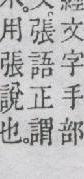 經文字手部
張語正謂
用張說也。